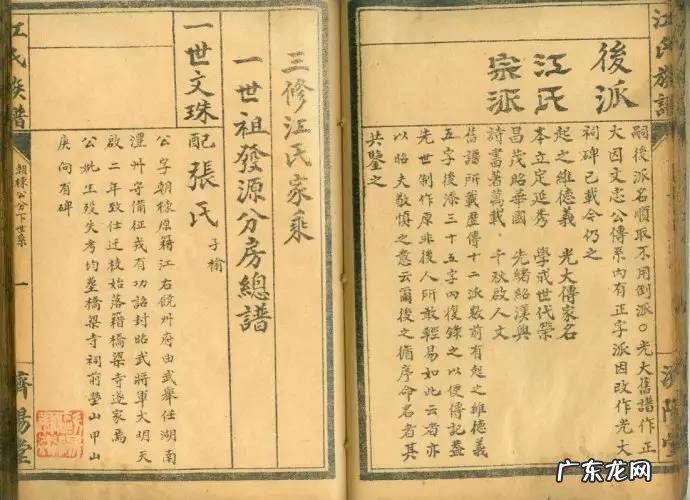 江氏族譜
濟陽堂
後派
江氏
宗派
嗣後派名順取不用倒派○光大舊譜作正
大因文忠公傳系內有正字派因改作光大
祠碑已載今仍之
起之維德義 光大傳家名
本立定延秀 學成世代榮
昌茂昭華國 先緒紹漢興
詩書著萬載 千秋啟人文
舊譜所載歷傳十二派數前有起之維德義
五字後添三十五字內復錄之以便傳記蓋
先世制作原非後人所敢輕易如此云者亦
以昭夫敬慎之意云爾後之循序命名者其
共鑒之
三修江氏家乘
一世祖發源分房總譜
一世文珠 配張氏 子榆
公字朝棟原籍江右饒州府由武舉任湖南
澧州守備征莪有功誥封昭武將軍大明天
啟二年致仕迁校始落籍橋梁寺遂家焉
公妣生歿失考均塟橋梁寺祠前塋山甲山
庚向有碑
江氏族譜
朝棟公分下世系
一
濟陽堂
广东龙网